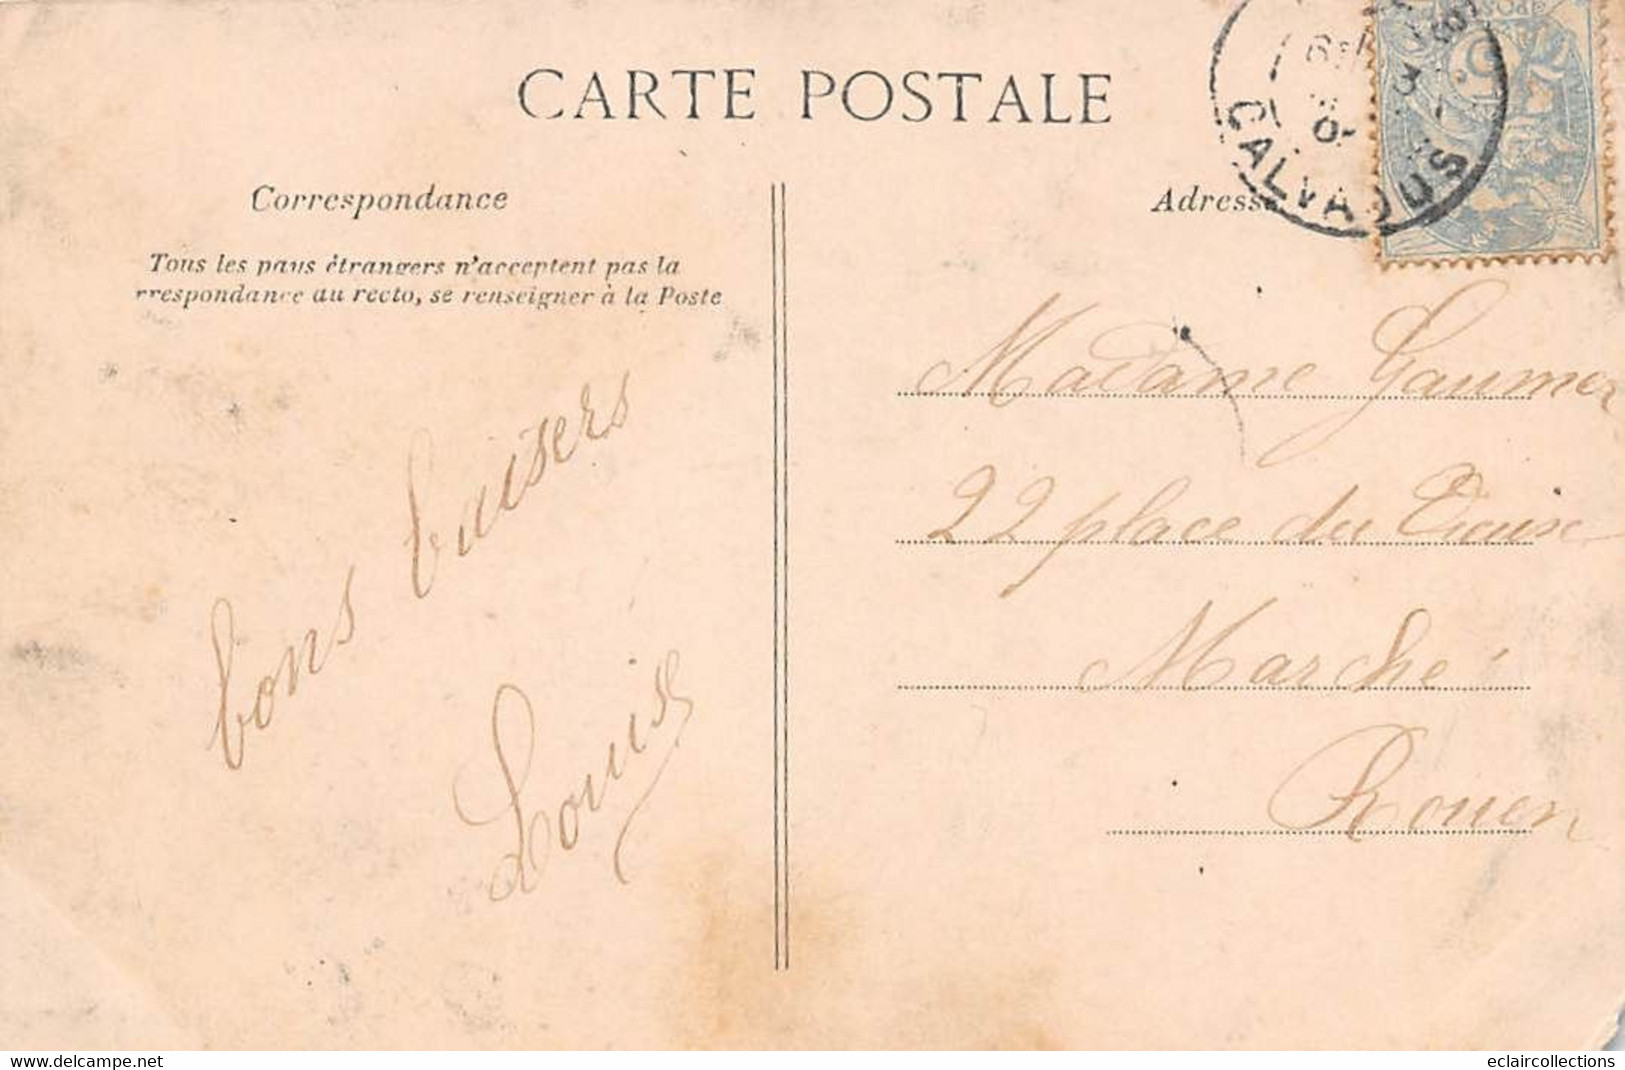 CARTE POSTALE
Correspondance
Tous les pays étrangers n'acceptent pas la
rrespondance au recto, se renseigner à la Poste
Adresse
CALVADOS
bons baisers
Louise
Madame Gaumer
22 place du Vieux
Marché
Rouen
Visit our ebay Store
eclaircollections